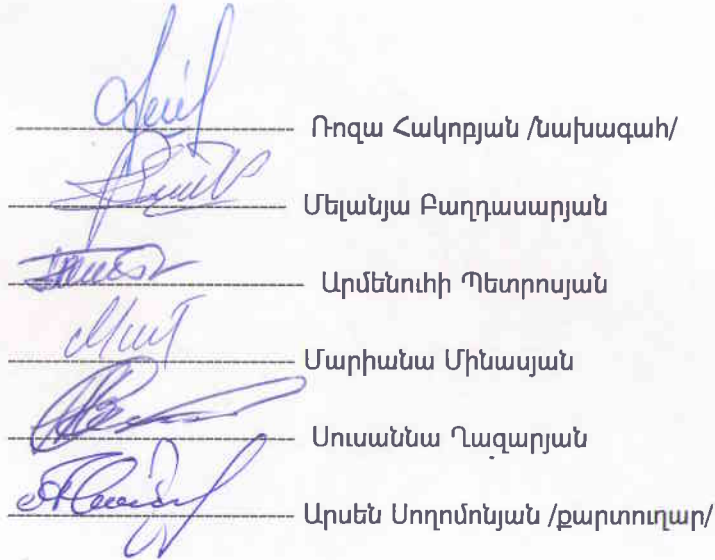 Ռոզա Հակոբյան /նախագահ/
Մելանյա Բաղդասարյան
Արմենուհի Պետրոսյան
Մարիանա Մինասյան
Սուսաննա Ղազարյան
Արսեն Սողոմոնյան /քարտուղար/